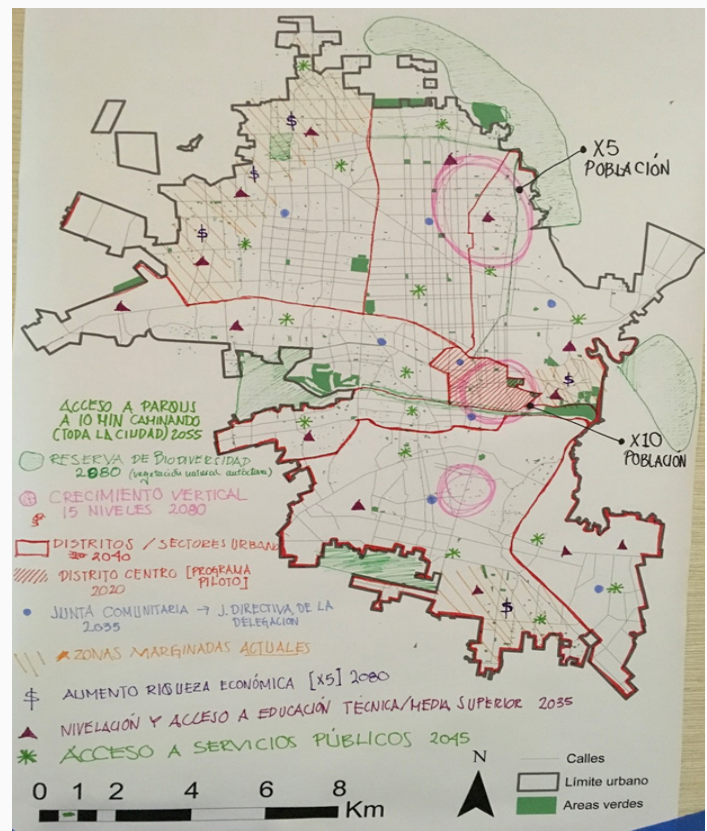 X5
POBLACIÓN
X10
POBLACIÓN
ACCESO A PARQUES
A 10 MIN CAMINANDO
(TODA LA CIUDAD) 2055
RESERVA DE BIODIVERSIDAD
2080 (vegetación natural autóctona)
CRECIMIENTO VERTICAL
15 NIVELES 2080
DISTRITOS / SECTORES URBANO
2040
DISTRITO CENTRO [PROGRAMA
2020 PILOTO]
JUNTA COMUNITARIA → J. DIRECTIVA DE LA
2035 DELEGACIÓN
ZONAS MARGINADAS ACTUALES
$ AUMENTO RIQUEZA ECONÓMICA [X5] 2080
NIVELACIÓN Y ACCESO A EDUCACIÓN TÉCNICA/MEDIA SUPERIOR 2035
ACCESO A SERVICIOS PÚBLICOS 2045
0 1 2 4 6 8
Km
N
Calles
Límite urbano
Areas verdes
$
$
$
$
$